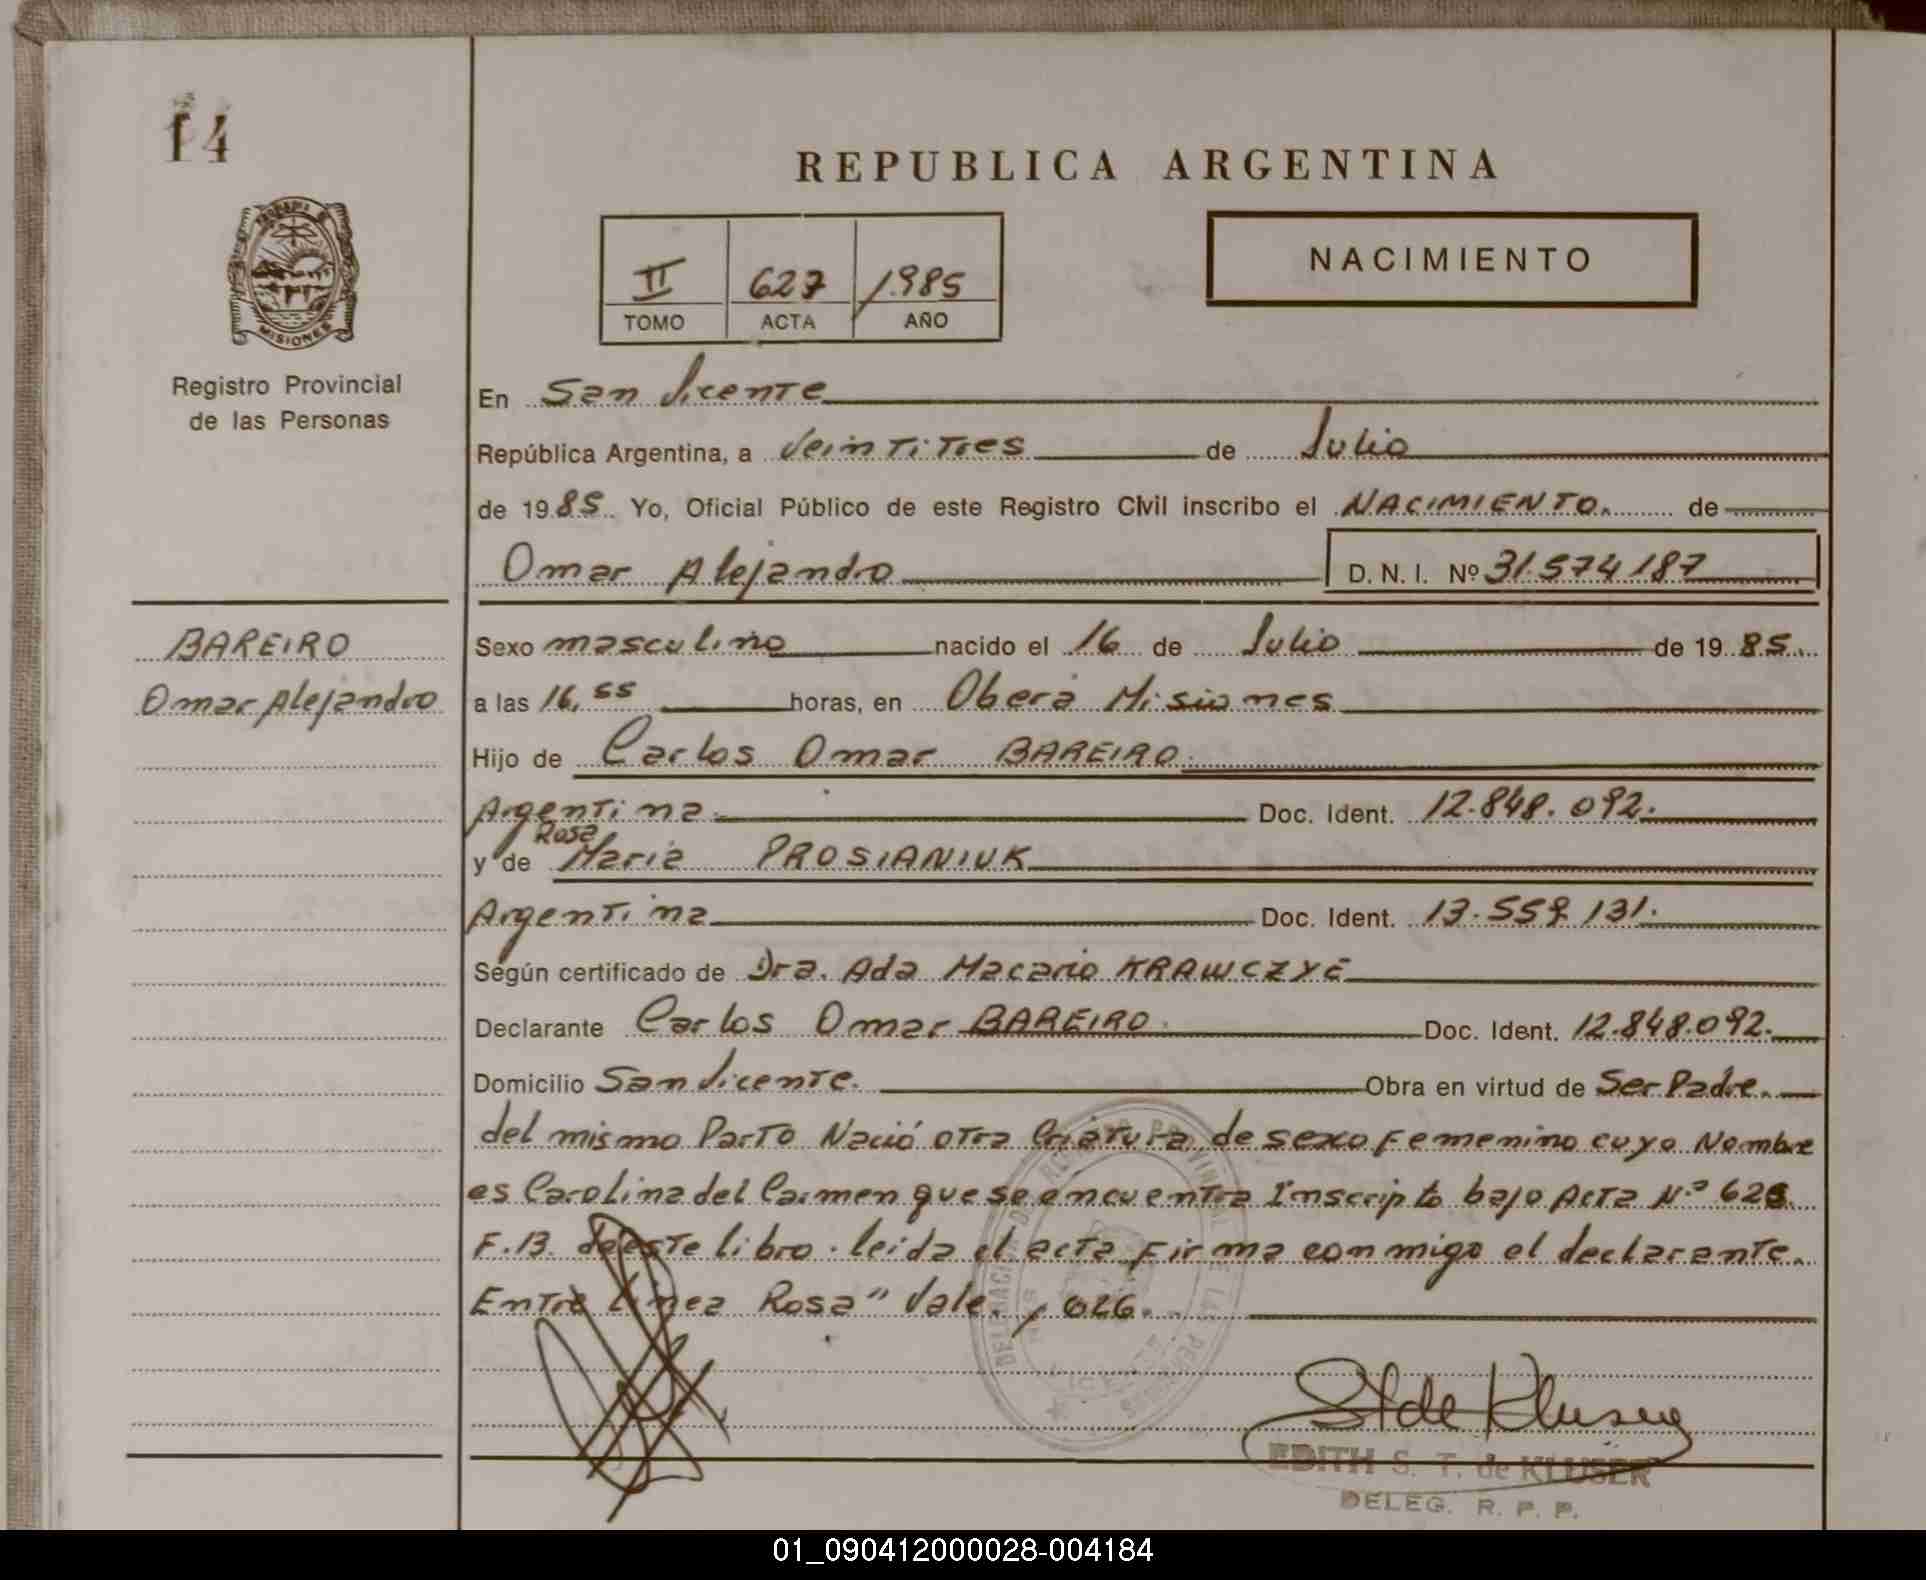 14
REPUBLICA ARGENTINA
NACIMIENTO
II 627 1985
TOMO ACTA AÑO
MISIONES
Registro Provincial
de las Personas
En San Vicente
República Argentina, a Veintitres de Julio
de 1985. Yo, Oficial Público de este Registro Civil inscribo el NACIMIENTO. de
Omar Alejandro D. N. I. Nº 31.574.187
BAREIRO
Omar Alejandro
Sexo masculino nacido el 16 de Julio de 1985.
a las 16,55 horas, en Oberá Misiones
Hijo de Carlos Omar BAREIRO.
Argentina. Doc. Ident. 12.848.092.
Rosa
y de Maria PROSIANIUK
Argentina Doc. Ident. 13.559.131.
Según certificado de Dra. Ada Macario
Declarante Carlos Omar BAREIRO. Doc. Ident. 12.848.092.
Domicilio San Vicente. Obra en virtud de Ser Padre.
del mismo Parto Nació otra Criatura de sexo Femenino cuyo Nombre
es Carolina del Carmen que se encuentra Inscripto bajo Acta N.º 626
F.13. de este libro. leida el acta Firma conmigo el declarante.
Entre linea Rosa" Vale., 626.
EDITH S. T. de KLUSER
DELEG. R. P. P.
01_090412000028-004184